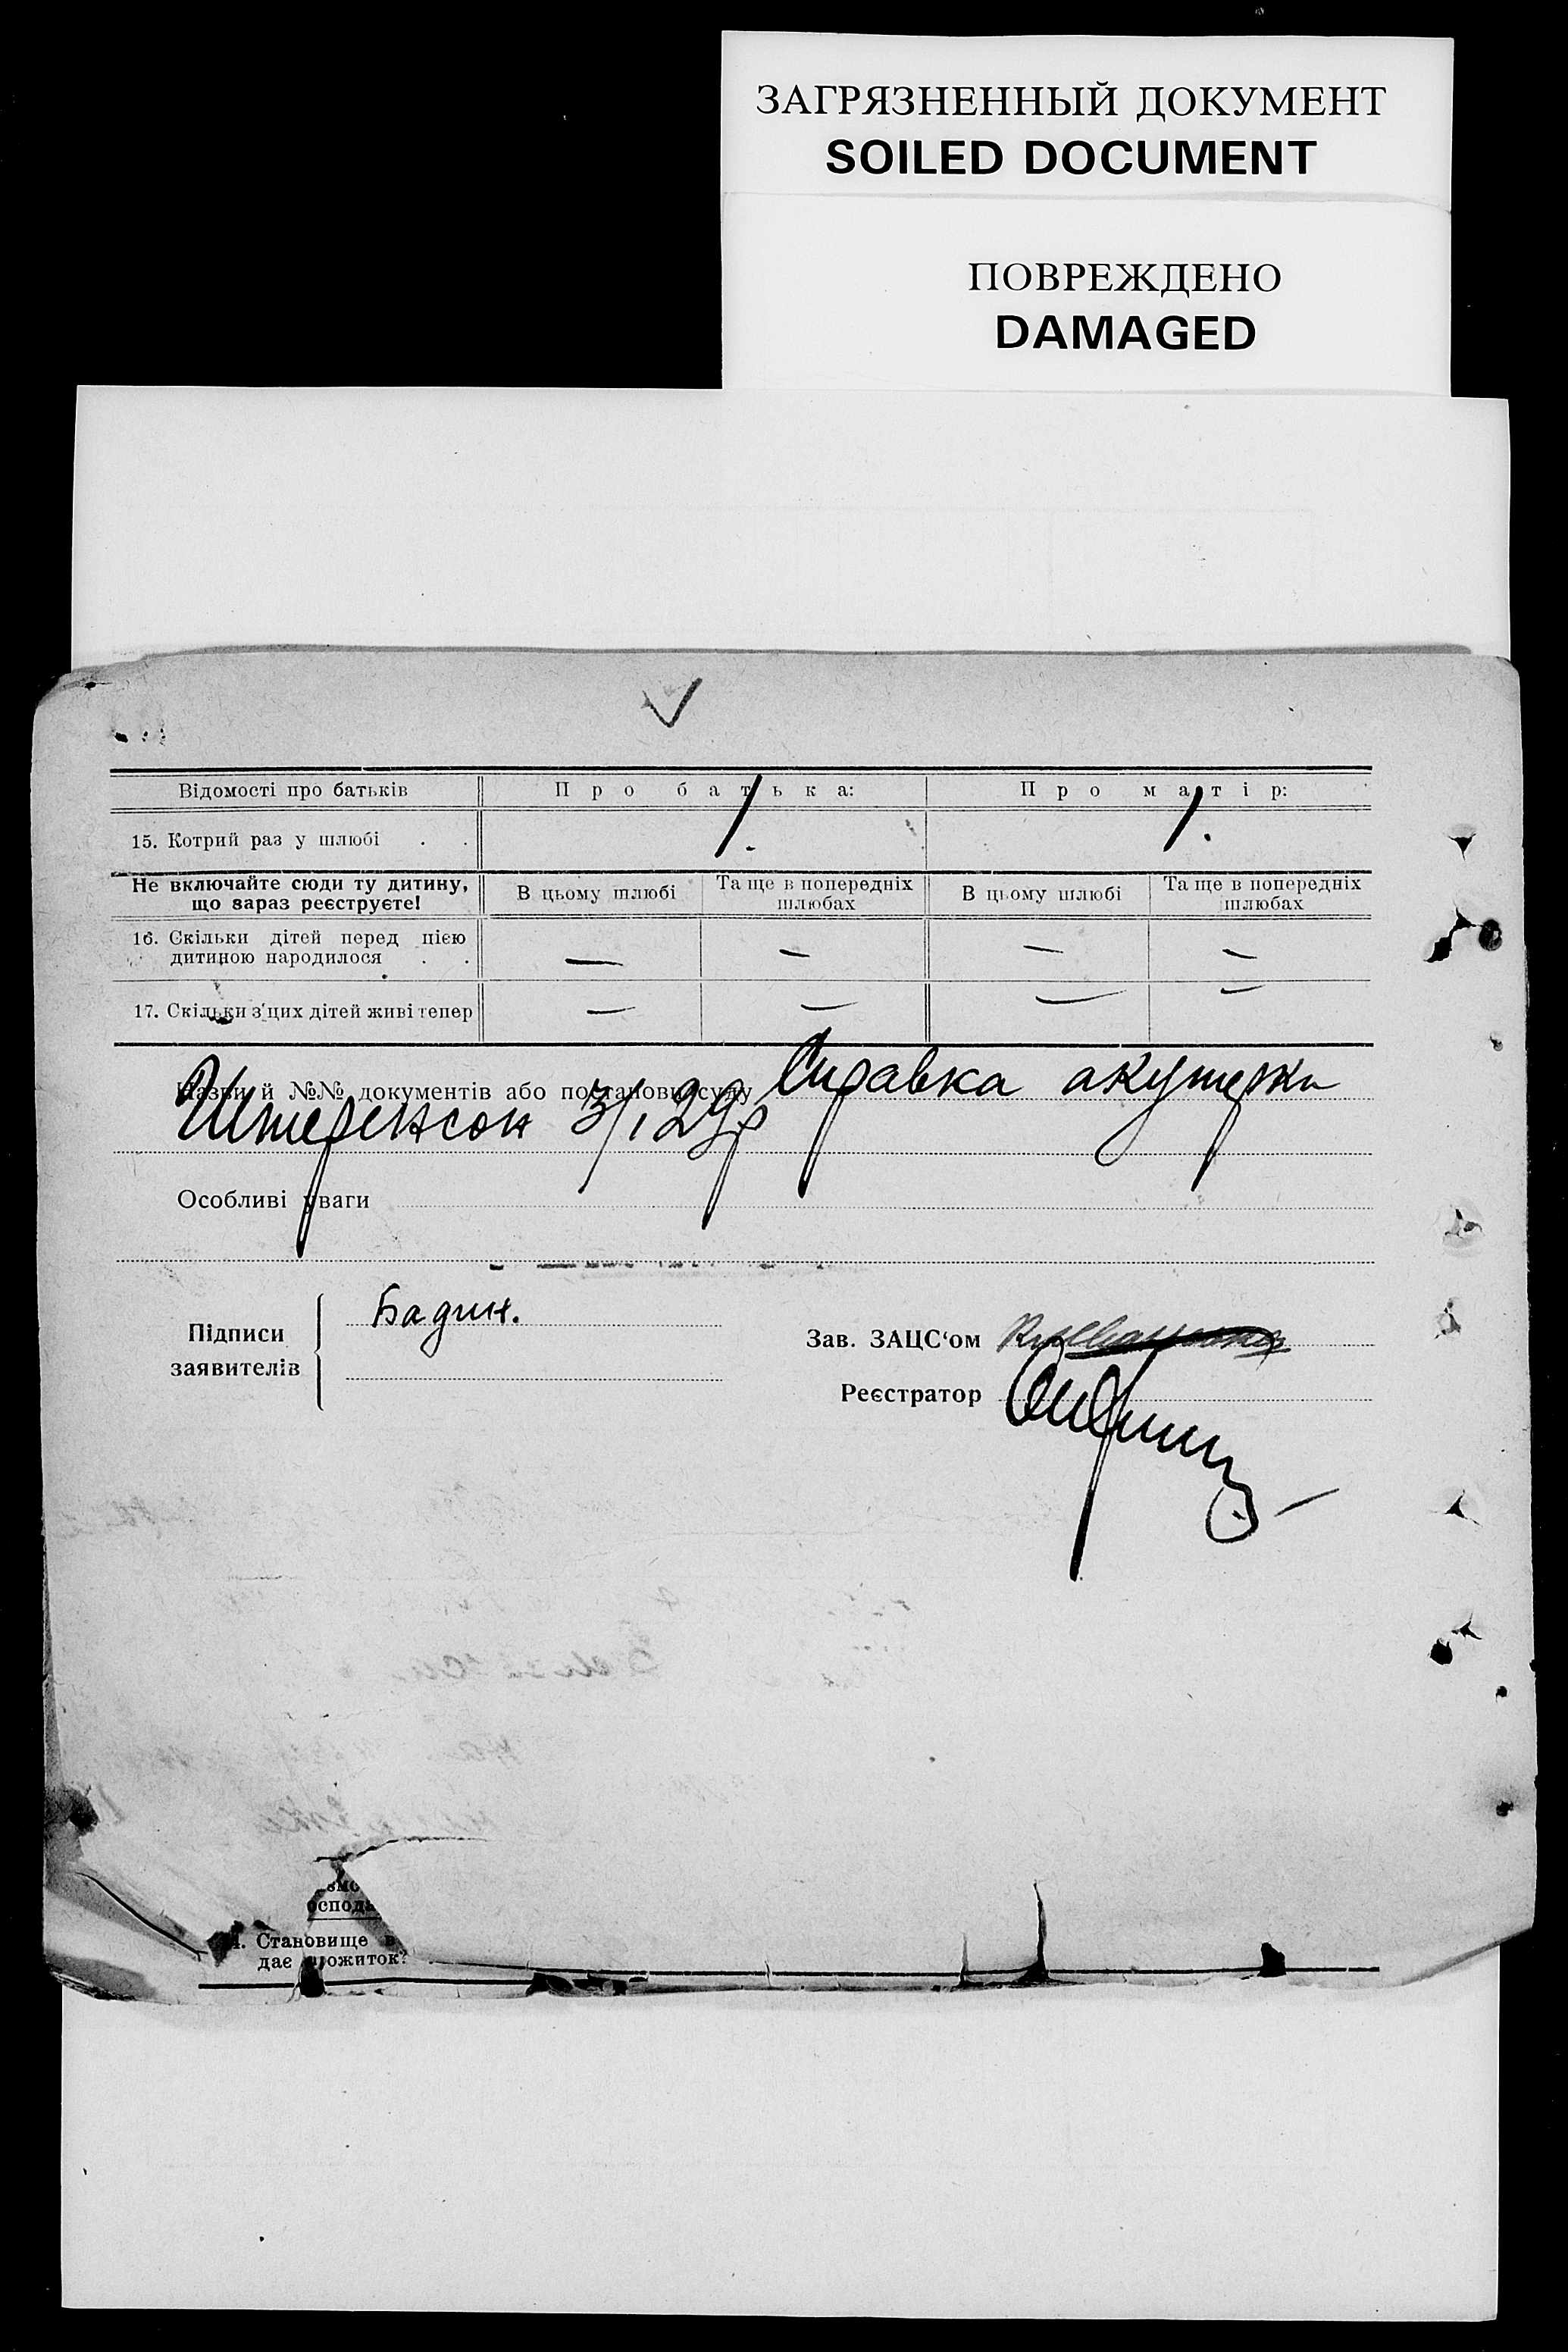 ЗАГРЯЗНЕННЫЙ ДОКУМЕНТ
SOILED DOCUMENT
ПОВРЕЖДЕНО
DAMAGED
Відомості про батьків Про батька: Про матір:
15. Котрий раз у шлюбі . . 1. 1.
Не включайте сюди ту дитину, що зараз реєструєте! В цьому шлюбі Та ще в попередніх шлюбах В цьому шлюбі Та ще в попередніх шлюбах
16. Скільки дітей перед цією дитиною народилося . . — — — —
17. Скільки з цих дітей живі тепер — — — —
Назви й №№ документів або постанови суду Справка акушерки
Штеренсон 3/1 29р
Особливі уваги
Підписи заявителів Бадин.
Зав. ЗАЦС‘ом
Реєстратор
осподо
Становище
дає прожиток?